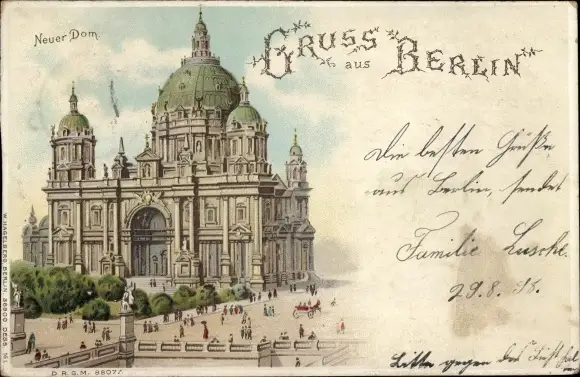 Neuer Dom.
GRUSS
aus BERLIN
Die besten Grüße
aus Berlin, sendet
Familie Lusche.
29.8.98.
Bitte gegen das Licht hal
W. HAGELBERG, BERLIN.
D.R.G.M. 88077